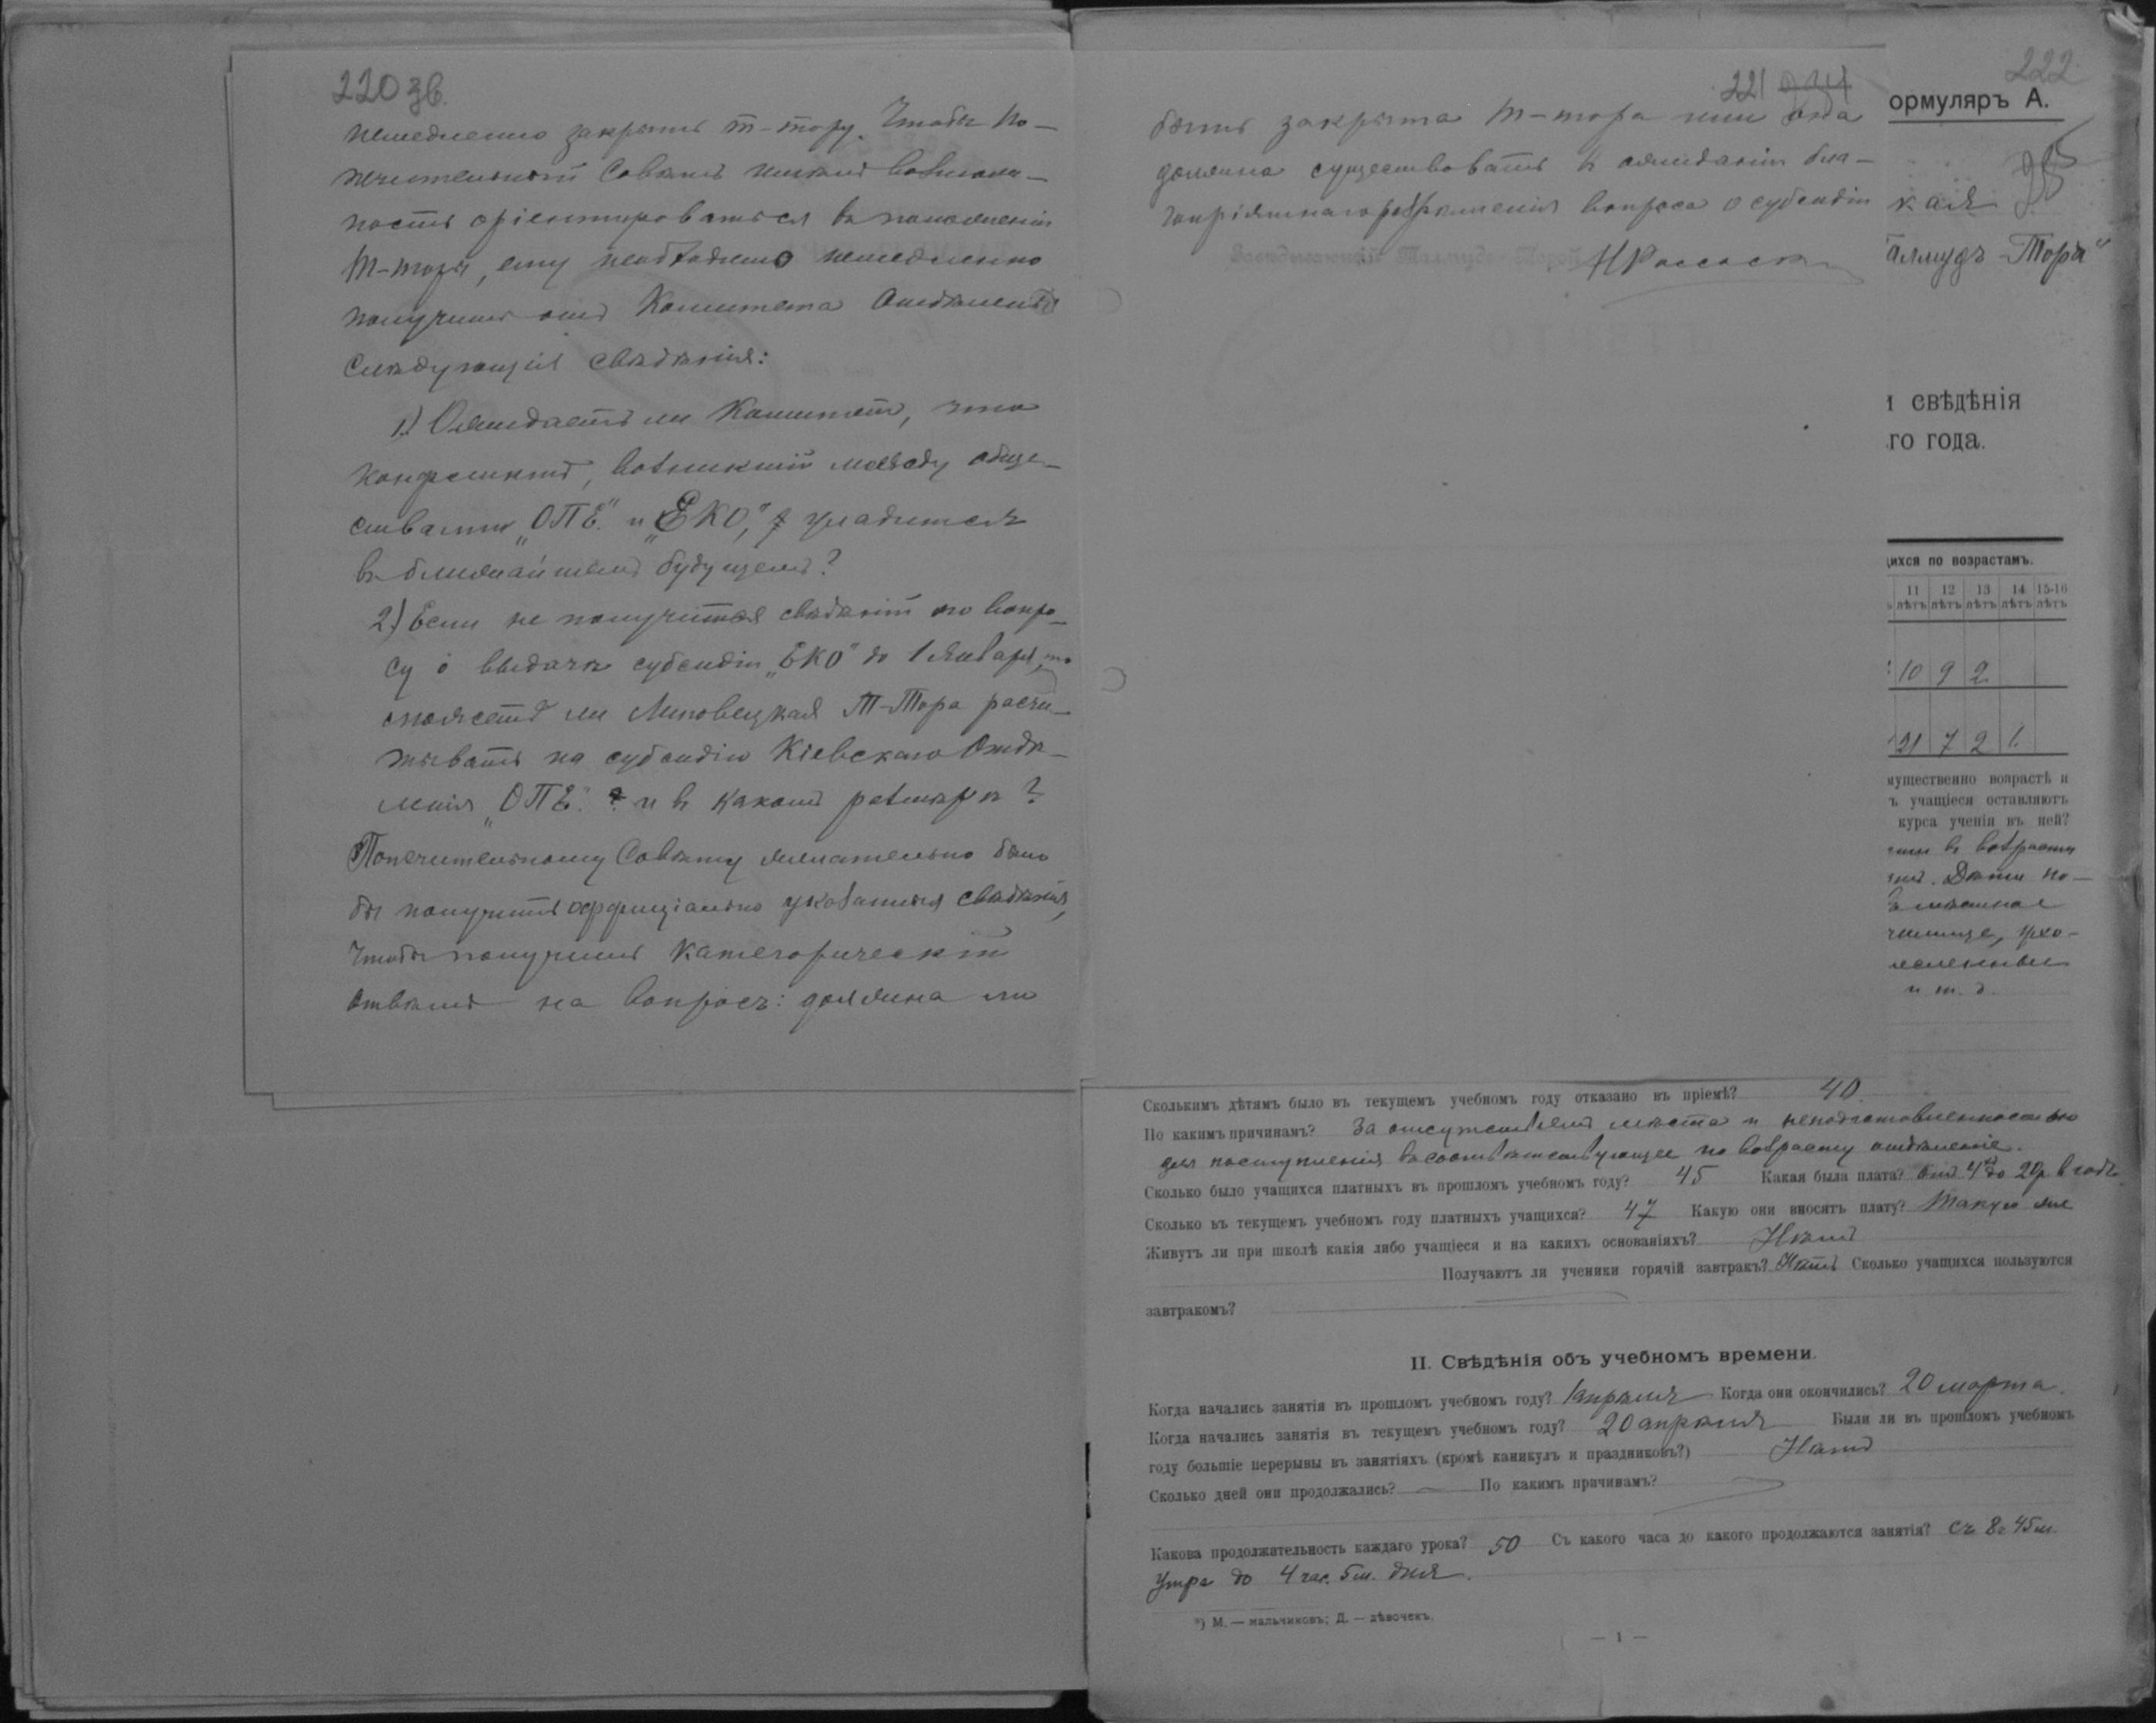 220 зв.
немедленно закрыть т-тору. Чтобы По-
печительный Совѣтъ имѣлъ возмож-
ность оріентироваться въ положеніи
Т-торы, ему необходимо немедленно
получить отъ Комитета Отдѣленія
слѣдующія свѣдѣнія:
1) Ожидаетъ ли Комитетъ, что
конфликтъ, возникшій между обще-
ствами „ОПЕ." и „ЕКО", уладится
въ ближайшемъ будущемъ?
2) Если не получится свѣдѣній по вопро-
су о выдачѣ субсидіи „ЕКО" до 1 января, то
можетъ ли Липовецкая Т-Тора расчи-
тывать на субсидію Кіевскаго Отдѣ-
ленія „ОПЕ." и въ какомъ размѣрѣ?
Попечительному Совѣту желательно было
бы получить оффиціально указанныя свѣдѣнія,
чтобы получить категорическій
отвѣтъ на вопросъ: должна ли
221
быть закрыта Т-тора или она
должна существовать въ ожиданіи бла-
гопріятнаго разрѣшенія вопроса о субсидіи
Завѣдывающій Талмудъ-Торой
222
ормуляръ А.
кая
алмудъ-Тора"
и свѣдѣнія
го года.
щихся по возрастамъ.
11 12 13 14 15-16
лѣтъ лѣтъ лѣтъ лѣтъ лѣтъ
10 9 2
21 7 2 1.
мущественно возрастѣ и
ъ учащіеся оставляютъ
курса ученія въ ней?
въ возрастѣ
Дѣти по-
и т. д.
Сколькимъ дѣтямъ было въ текущемъ учебномъ году отказано въ пріемѣ? 40.
По какимъ причинамъ? За отсутствіемъ мѣста и неподготовленностью
для поступленія въ соотвѣтствующее по возрасту отдѣленіе.
Сколько было учащихся платныхъ въ прошломъ учебномъ году? 45 Какая была плата? Отъ 4 до 20 р. въ годъ.
Сколько въ текущемъ учебномъ году платныхъ учащихся? 47 Какую они вносятъ плату? Такую же
Живутъ ли при школѣ какія либо учащіеся и на какихъ основаніяхъ? Нѣтъ
Получаютъ ли ученики горячій завтракъ? Нѣтъ Сколько учащихся пользуются
завтракомъ?
II. Свѣдѣнія объ учебномъ времени.
Когда начались занятія въ прошломъ учебномъ году? 1 апрѣля Когда они окончились? 20 марта.
Когда начались занятія въ текущемъ учебномъ году? 20 апрѣля Были ли въ прошломъ учебномъ
году большіе перерывы въ занятіяхъ (кромѣ каникулъ и праздниковъ?) Нѣтъ
Сколько дней они продолжались? — По какимъ причинамъ?
Какова продолжительность каждаго урока? 50 Съ какого часа до какого продолжаются занятія? Съ 8 ч. 45 м.
утра до 4 час. 5 м. дня.
*) М. — мальчиковъ; Д. — дѣвочекъ.
— 1 —